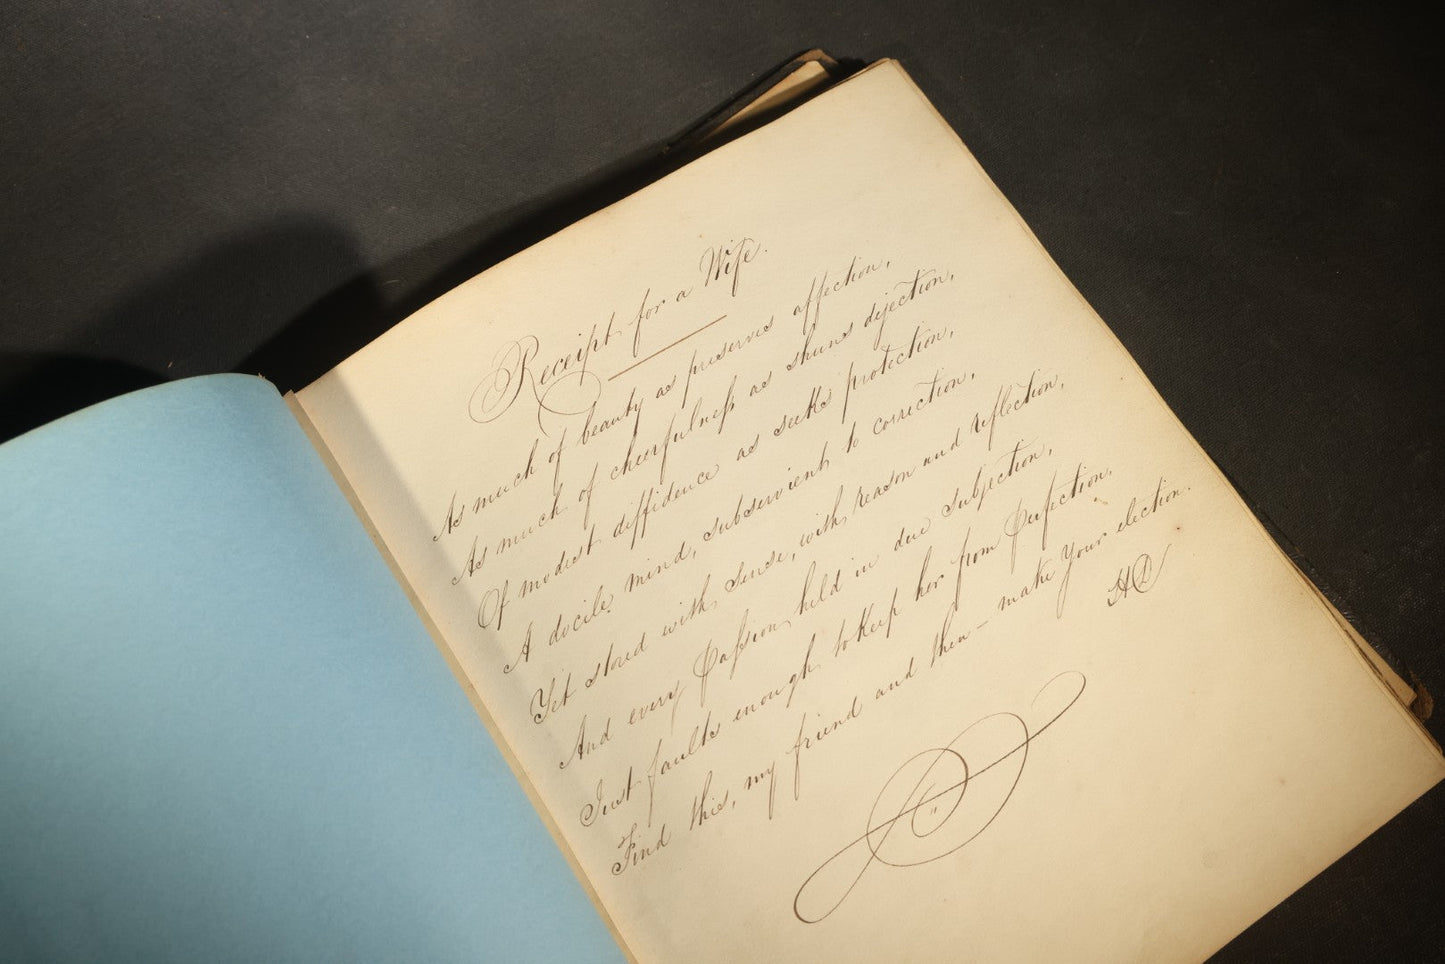 Receipt for a Wife.
As much of beauty as preserves affection,
As much of cheerfulness as shuns dejection,
Of modest diffidence as seeks protection,
A docile mind, subservient to correction,
Yet stored with sense, with reason and reflection,
And every Passion held in due subjection,
Just faults enough to keep her from Perfection,
Find this, my friend and then – make your election.
HD